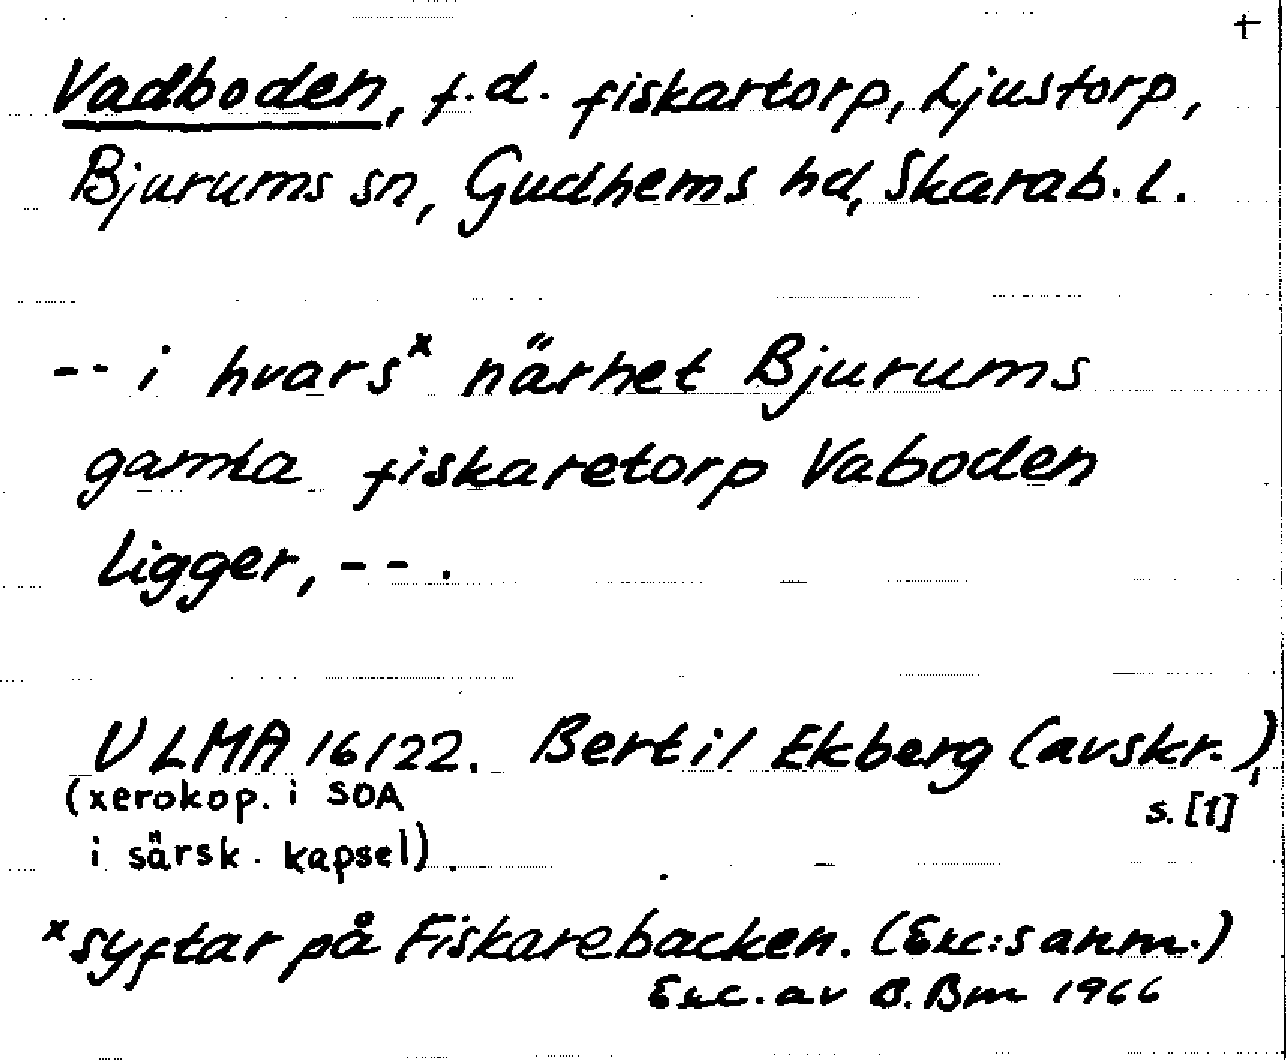 †
Vadboden, f.d. fiskartorp, Ljustorp,
Bjurums sn, Gudhems hd, Skarab. l.
-- i hvarsˣ närhet Bjurums
gamla fiskaretorp Vaboden
ligger, -- .
ULMA 16122. Bertil Ekberg (avskr.),
(xerokop. i SOA s. [1]
i särsk. kapsel).
ˣ syftar på Fiskarebacken. (Exc:s anm.)
Exc. av B. Bm 1966